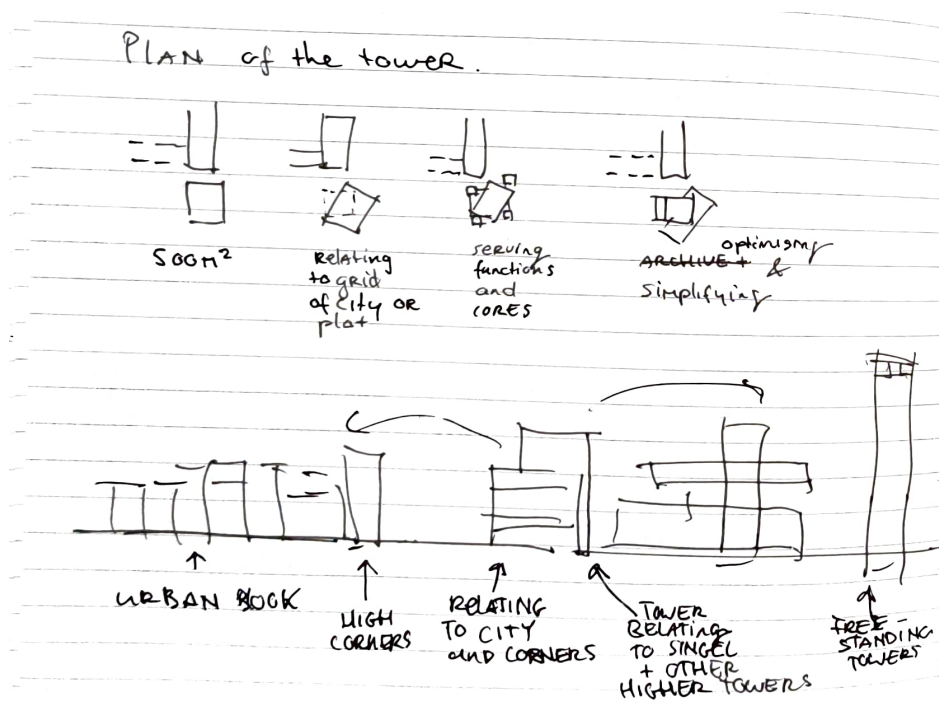 PLAN of the tower.
500M²
RELATING
to GRID
of CITY OR
plot
serving
functions
and
CORES
optimising
ARCHIVE + &
simplifying
URBAN BOOK
HIGH
CORNERS
RELATING
TO CITY
and CORNERS
TOWER
RELATING
TO SINGEL
+ OTHER
HIGHER TOWERS
FREE-
STANDING
TOWERS